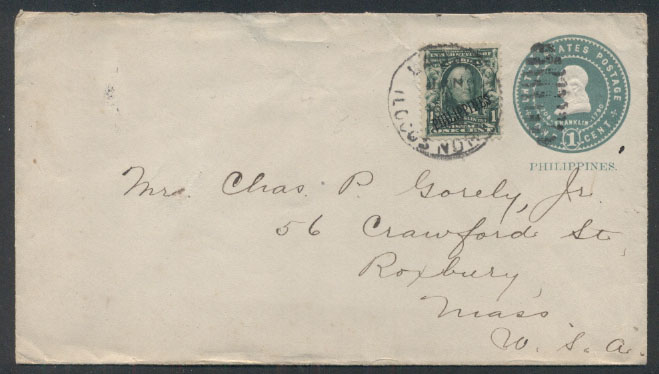 UNITED STATES POSTAGE
FRANKLIN
1 CENT
PHILIPPINES.
PHILIPPINES
1 1
ILOCOS
Mrs. Chas. P. Gorely, Jr.
56 Crawford St.
Roxbury,
Mass
U. S. A.